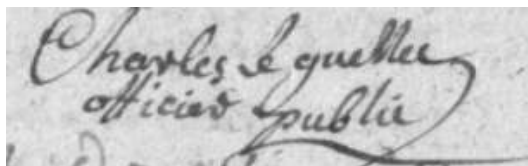 Charles Le guellec
officier public